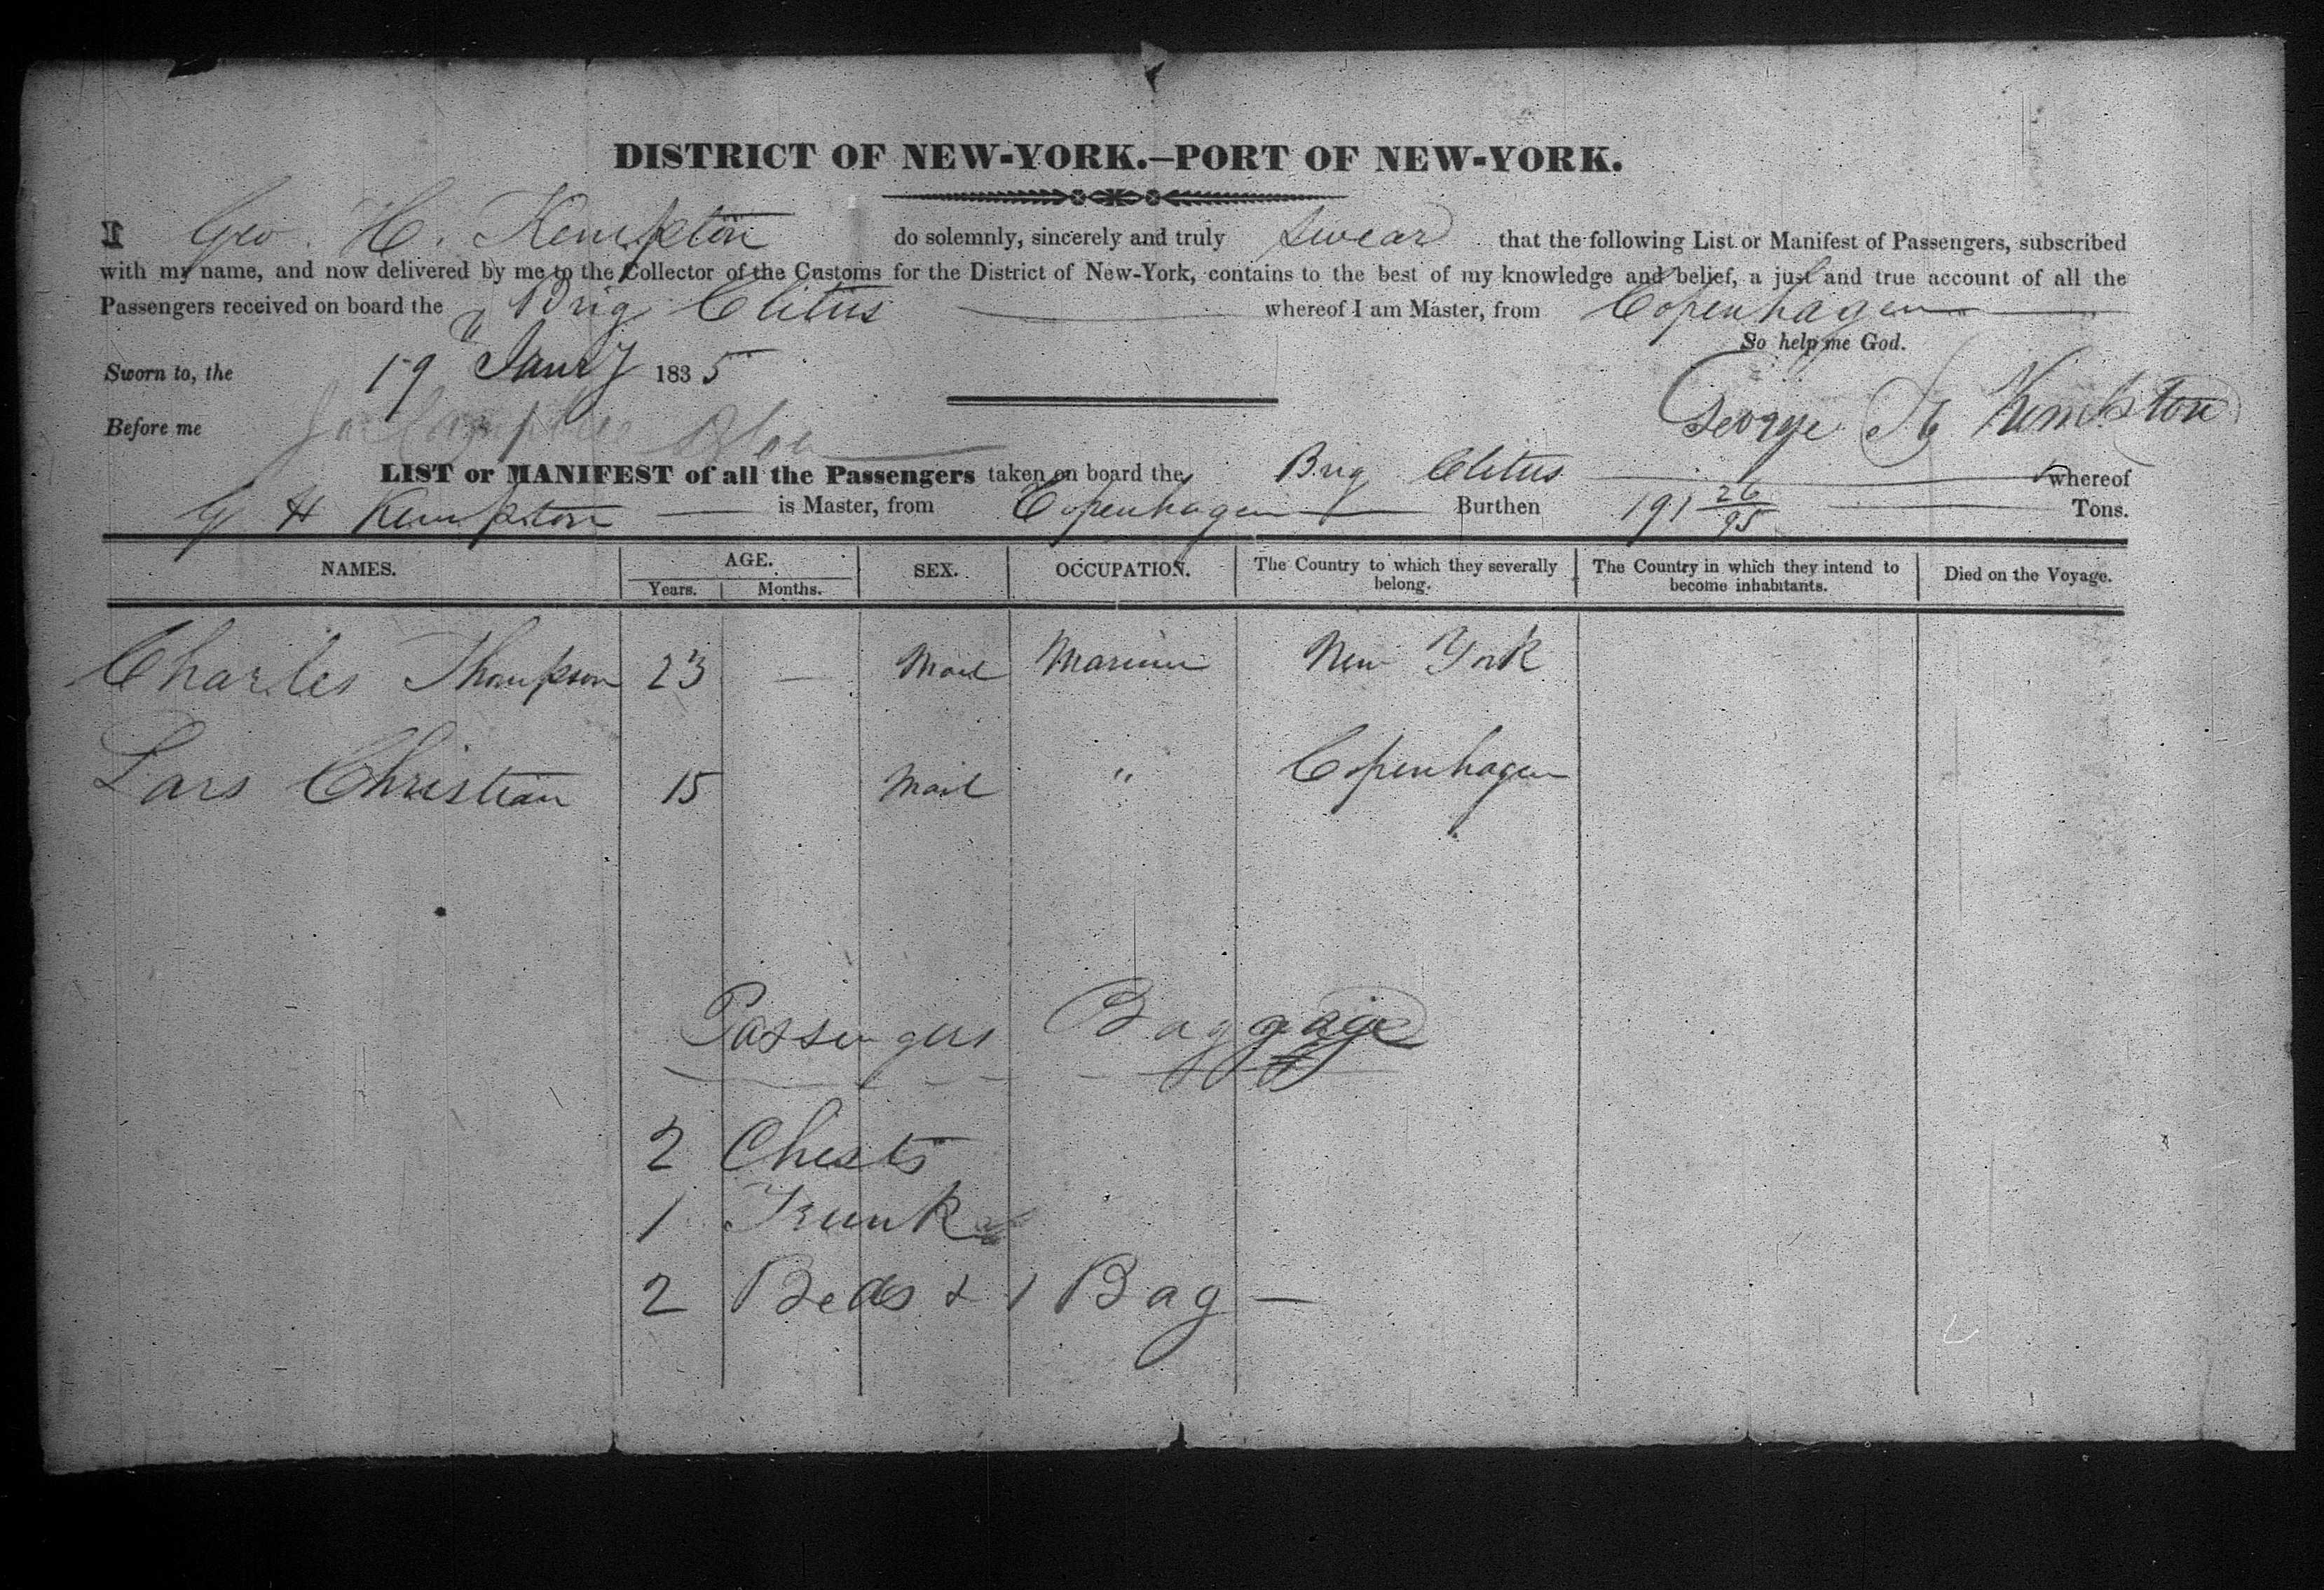 DISTRICT OF NEW-YORK.—PORT OF NEW-YORK.
I Geo. H. Kempton do solemnly, sincerely and truly swear that the following List or Manifest of Passengers, subscribed
with my name, and now delivered by me to the Collector of the Customs for the District of New-York, contains to the best of my knowledge and belief, a just and true account of all the
Passengers received on board the Brig Clitus whereof I am Master, from Copenhagen
So help me God.
Sworn to, the 19" Jany 1835
George H Kempton
Before me
LIST or MANIFEST of all the Passengers taken on board the Brig Clitus whereof
G H Kempton is Master, from Copenhagen Burthen 191 26/95 Tons.
NAMES. AGE. SEX. OCCUPATION. The Country to which they severally belong. The Country in which they intend to become inhabitants. Died on the Voyage.
Years. Months.
Charles Thompson 23 — Mail Mariner New York
Lars Christian 15 Mail " Copenhagen
Passengers Baggage
2 Chests
1 Trunk
2 Beds & 1 Bag —